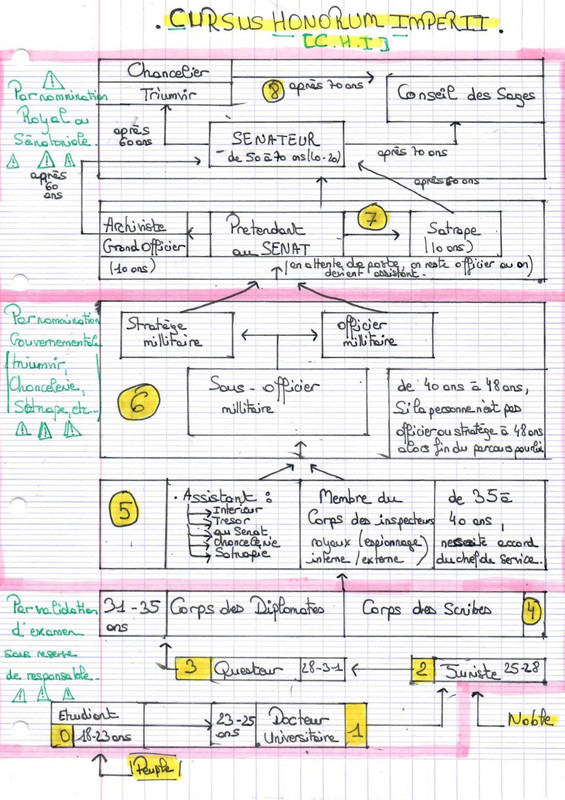 . CURSUS HONORUM IMPERII .
[C.H.I]
Par nommination
Royal ou
Sénatoriale.
Chancelier
Triumvir
8
après 70 ans
Conseil des Sages
après
60 ans
SENATEUR
- de 50 à 70 ans (10-20)
après 70 ans
après
60
ans
après 60 ans
Archiviste
Grand Officier
(10 ans)
Prétendant
au SENAT
7
Satrape
(10 ans)
(en attente de poste, on reste officier ou on)
devient assistant.
Par nommination
Gouvernementale
triumvir,
Chancelerie,
Satrape, etc...
Stratège
millitaire
officier
millitaire
6
Sous-officier
millitaire
de 40 ans à 48 ans,
Si la personne n'est pas
officier ou stratège à 48 ans
alors fin du parcours pour lui
5
. Assistant :
Intérieur
Trésor
au Sénat
chancelerie
Satrapie
Membre du
Corps des inspecteurs
royaux (espionnage)
interne / externe /
de 35 à
40 ans,
nécessite accord
du chef de service.
Par validation
d'examen
sous reserve
de responsable.
31-35
ans
Corps des Diplomates
Corps des Scribes
4
3
Questeur
28-31
2
Juriste
25-28
Etudiant
0
18-23 ans
23-25
ans
Docteur
Universitaire
1
Noble
Peuple